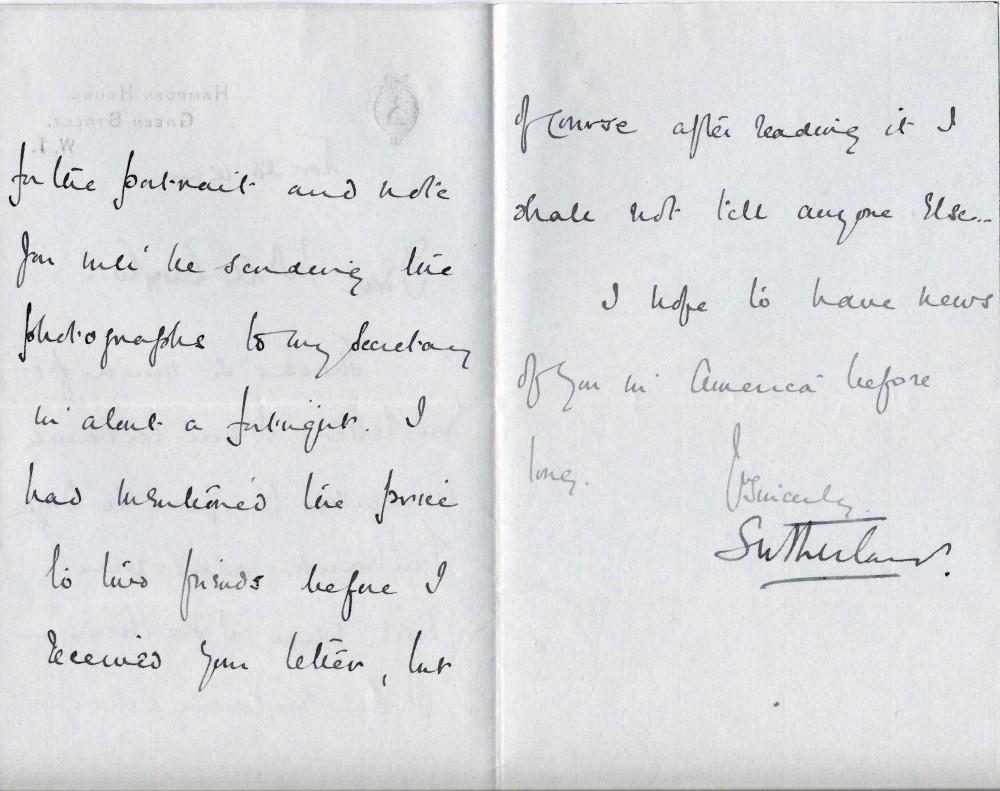 HAMPDEN HOUSE,
GREEN STREET,
W.1.
for the portrait and note
you will be sending the
photographs to my secretary
in about a fortnight. I
had mentioned the price
to two friends before I
received your letter, but
of course after reading it I
shall not tell anyone else..
I hope to have news
of you in America before
long.
Yrs sincerely
Sutherland.